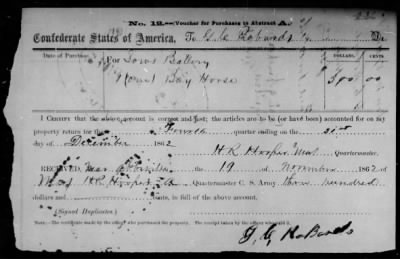 No. 12.—Voucher for Purchases to Abstract A.
Confederate States of America, To G. C. Robards Dr.
Date of Purchase. DOLLARS. CENTS.
For Battery
1 Bay Horse 300 00
I CERTIFY that the above account is correct and just; the articles are to be (or have been) accounted for on my
property return for the Fourth quarter ending on the 31st
day of December 1862
H R Hooper Maj Quartermaster.
RECEIVED, Near the 19 of November 1862 of
Maj H R Hooper Quartermaster C. S. Army, three hundred
dollars and cents, in full of the above account.
(Signed Duplicates)
NOTE.—The certificate made by the officer who purchased the property. The receipt taken of the officer who paid it.
G. C. Robards